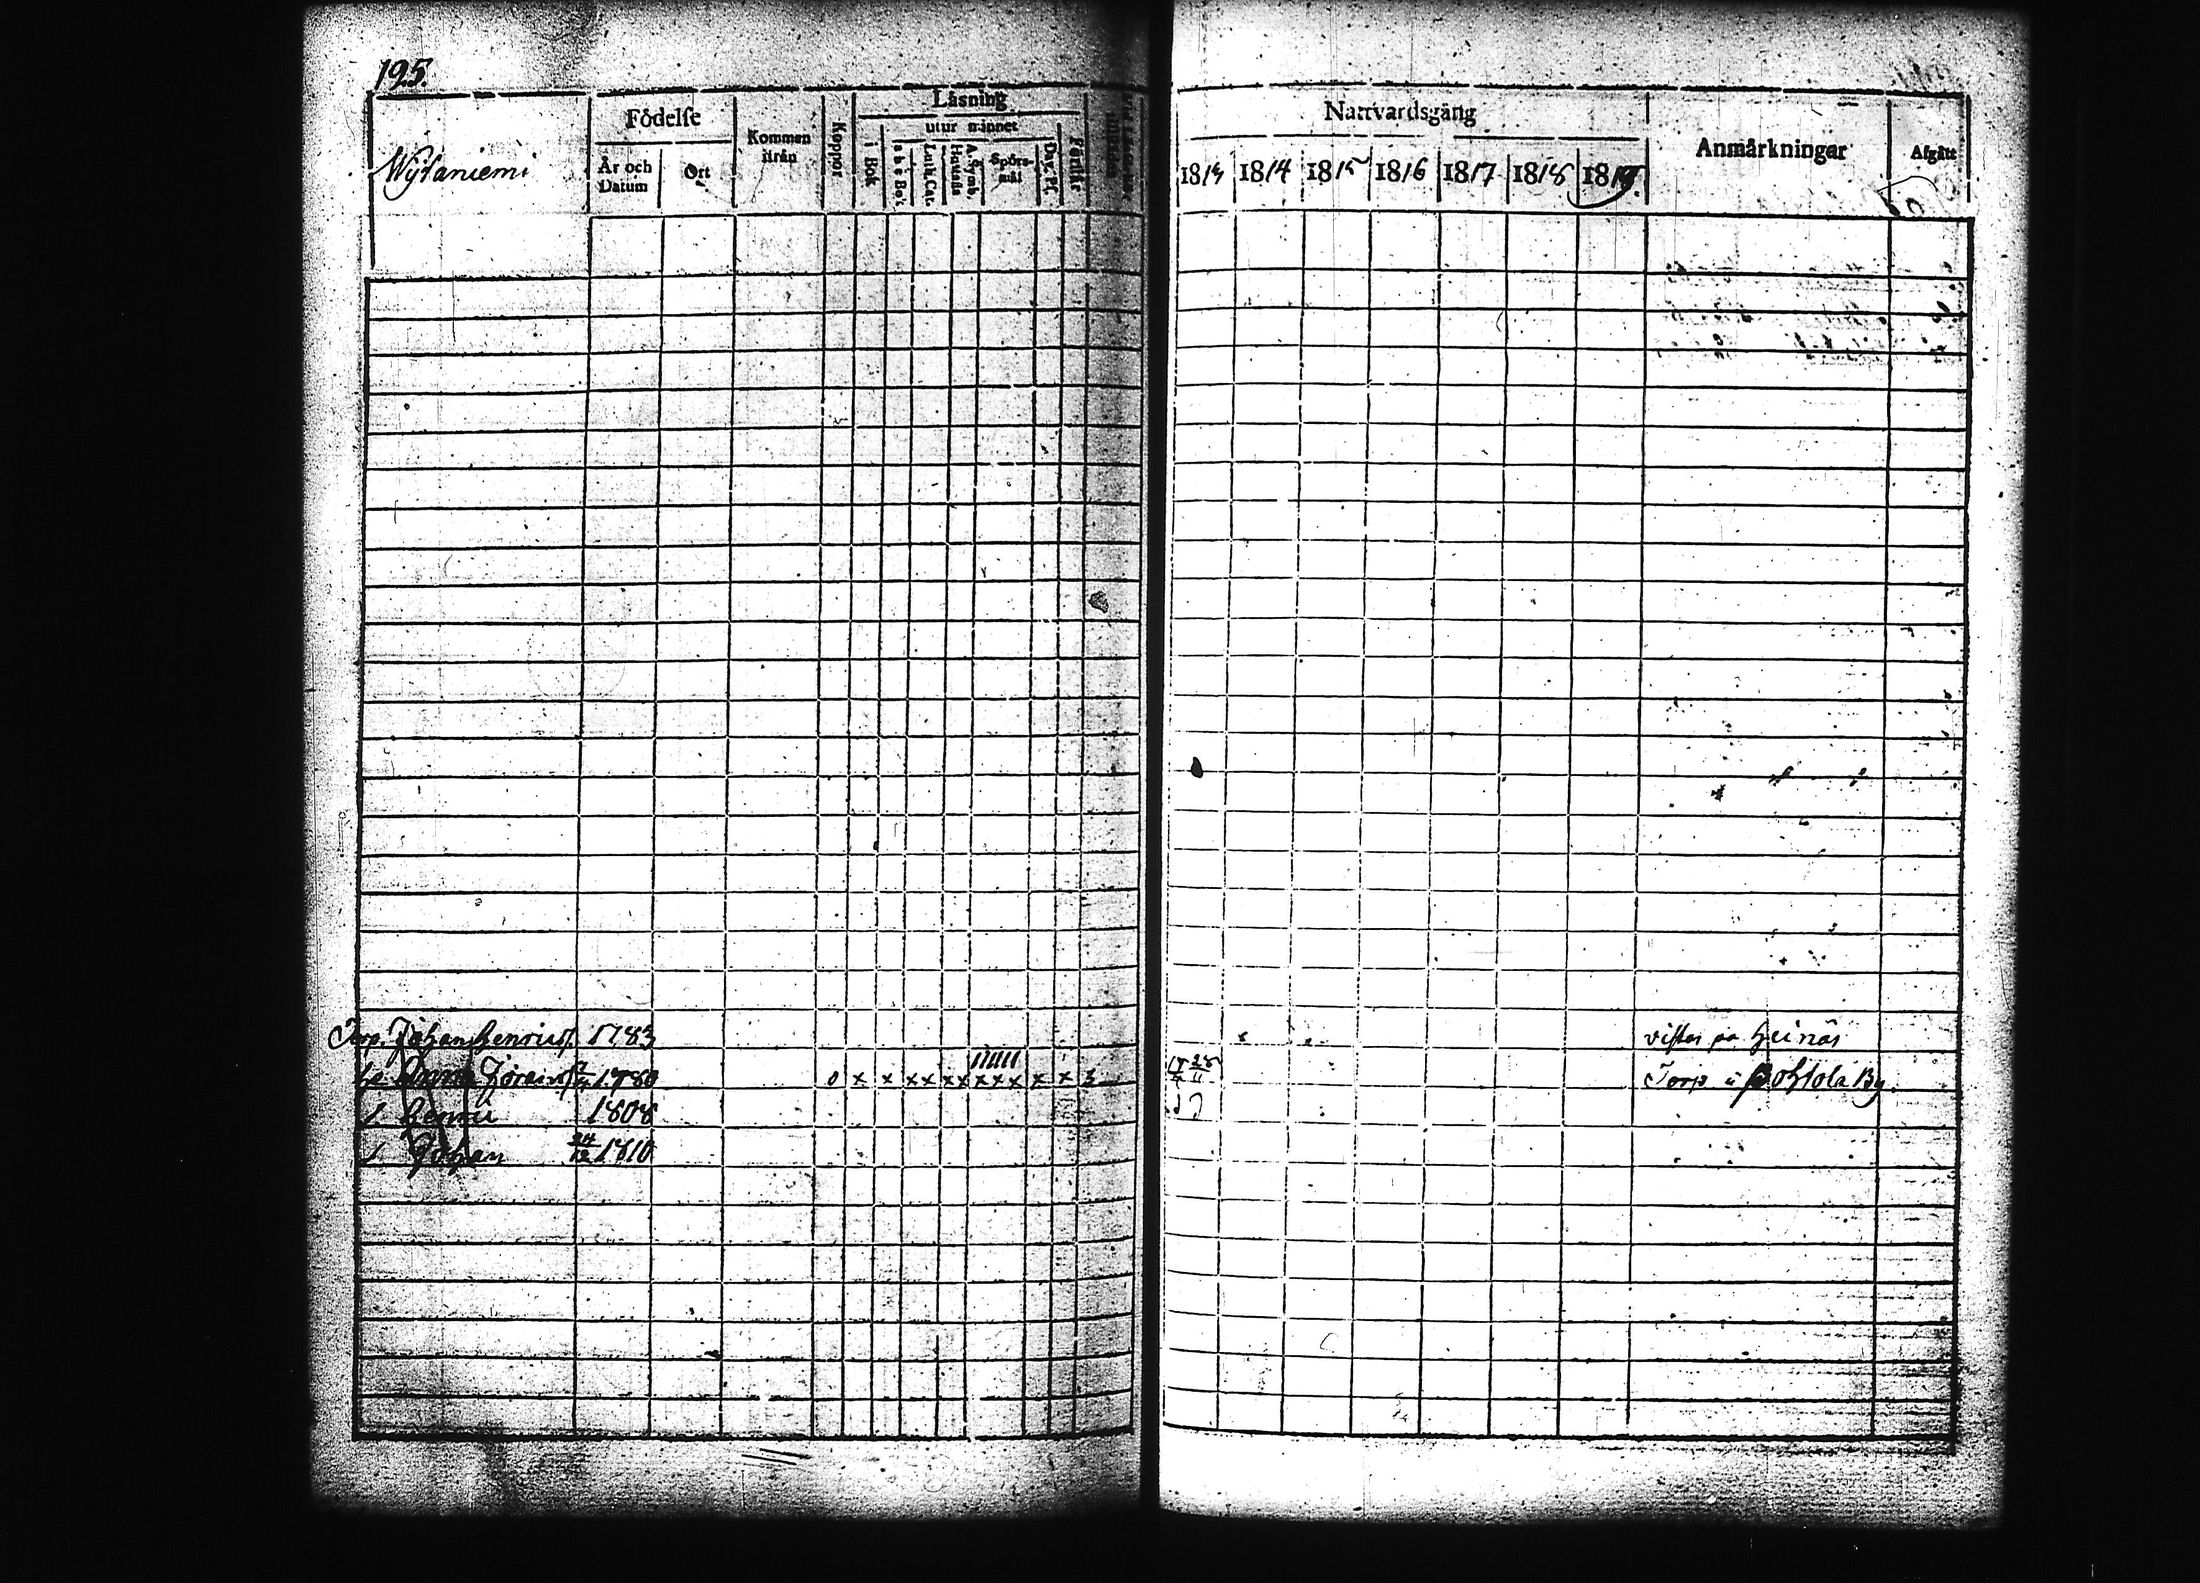 195.
Wytaniemi
Födelse
År och Datum
Ort
Kommen ifrån
Koppor
Läsning
utur minnet
i Bok
a b c Bok
Luth. Cat.
Hustafla
A. Symb.
Spörsmål
Dav. Ps.
Förstår
Nattvardsgång
1813 1814 1815 1816 1817 1818 1819.
Anmärkningar
Afgått
Torp. Johan Henriss. 1783 vistas på Heinäs
h. Anna Göransd. 1780 0 x x x x x x x x x x x 3 Torp i Pohtola By.
s. Henric 1808
s. Johan 24/12 1810